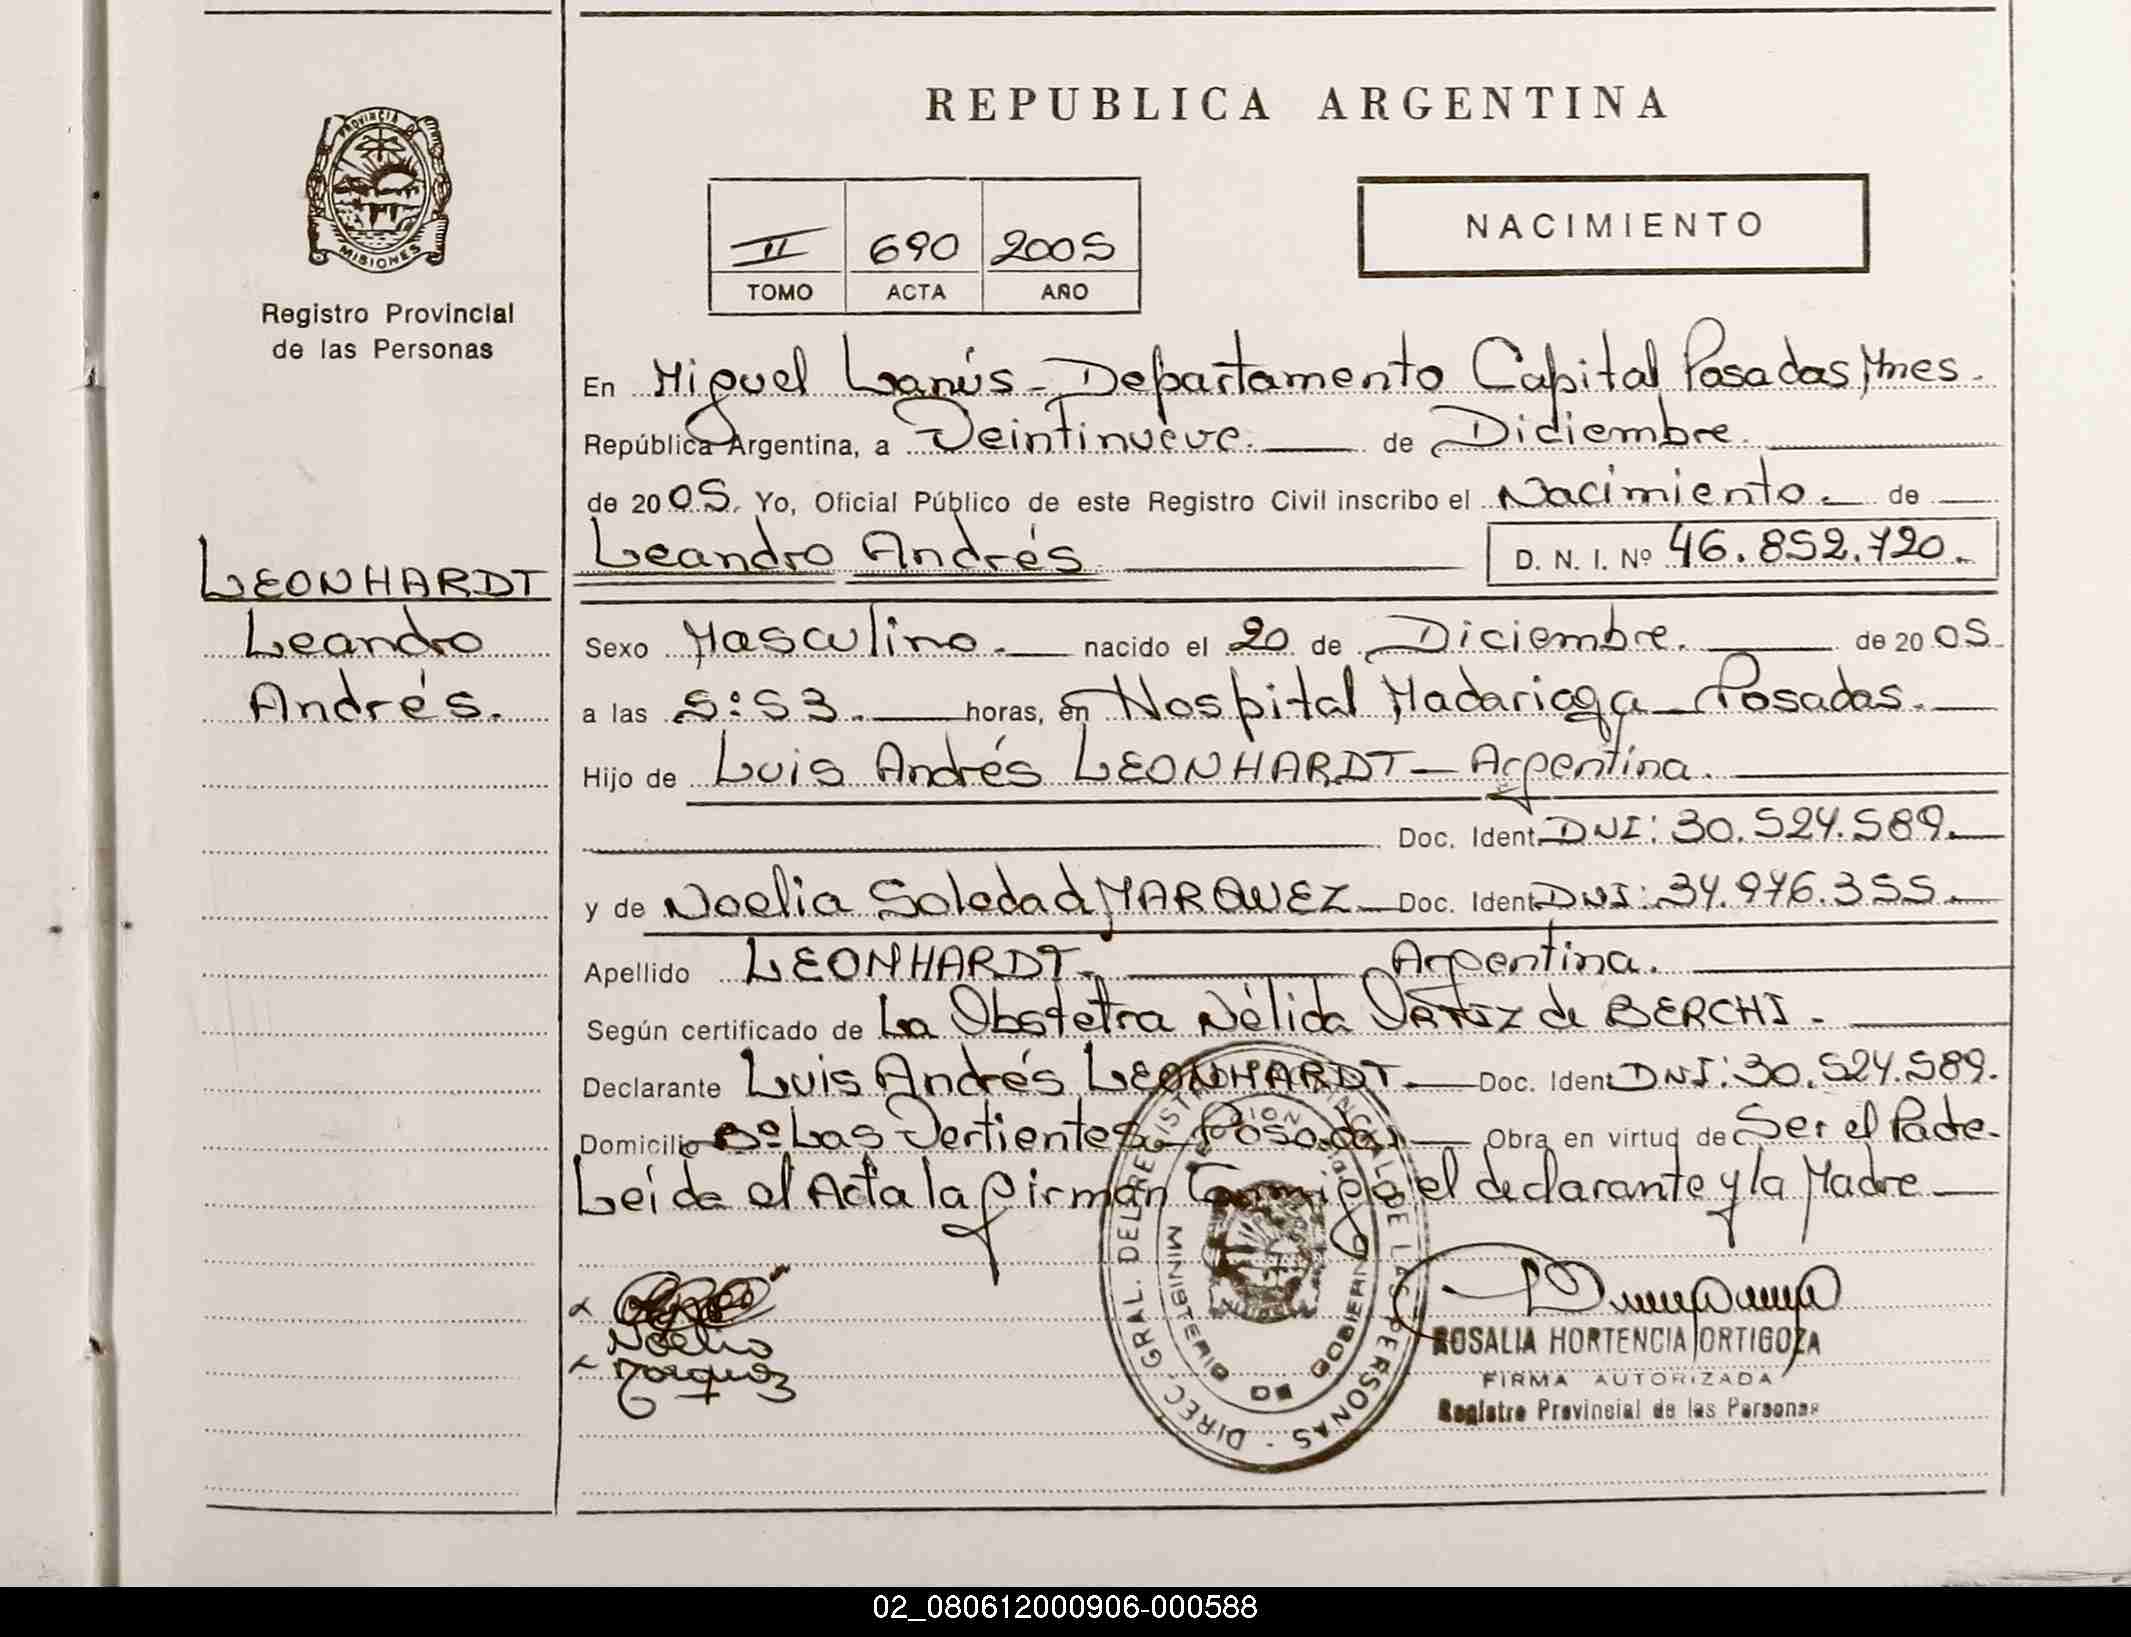 REPUBLICA ARGENTINA
PROVINCIA DE
MISIONES
Registro Provincial
de las Personas
II 690 2005
TOMO ACTA AÑO
NACIMIENTO
En Miguel Lanús - Departamento Capital Posadas Mnes.
República Argentina, a Veintinueve. de Diciembre.
de 2005. Yo, Oficial Público de este Registro Civil inscribo el Nacimiento. de
Leandro Andrés D. N. I. Nº 46.852.720.
LEONHARDT
Leandro
Andrés.
Sexo Masculino. nacido el 20 de Diciembre. de 2005.
a las 5:53. horas, en Hospital Madariaga - Posadas.
Hijo de Luis Andrés LEONHARDT - Argentina.
Doc. Ident. DNI: 30.524.589.
y de Noelia Soledad MARQUEZ - Doc. Ident. DNI: 34.976.355.
Apellido LEONHARDT. Argentina.
Según certificado de La Obstetra Nélida ORTIZ de BERCHI.
Declarante Luis Andrés LEONHARDT. Doc. Ident DNI: 30.524.589.
Domicilio Bº Las Vertientes - Posadas Obra en virtud de Ser el Padre.
Leida el Acta la firman Conmigo el declarante y la Madre
Noelia
Marquez
DIREC. GRAL. DEL REGISTRO PROVINCIAL DE LAS PERSONAS
MINISTERIO DE GOBIERNO
ROSALIA HORTENCIA ORTIGOZA
FIRMA AUTORIZADA
Registro Provincial de las Personas
02_080612000906-000588